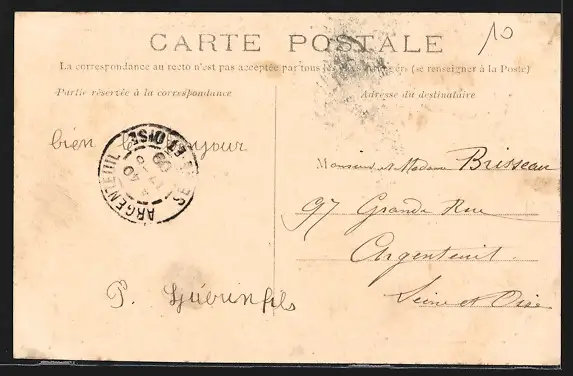 CARTE POSTALE
10
La correspondance au recto n'est pas acceptée par tous les pays étrangers (se renseigner à la Poste)
Partie réservée à la correspondance
Adresse du destinataire
bien le bonjour
P. Guérin fils
ARGENTEUIL
SEINE ET OISE
Monsieur et Madame Brisseau
97 Grande Rue
Argenteuil
Seine et Oise